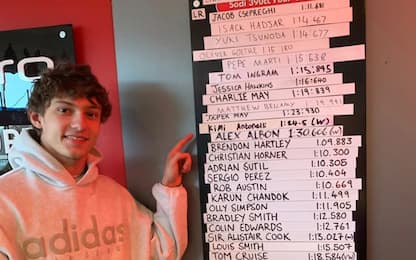 Sodi 390cc
LR JACOB CSEPREGHI 1:11.
ISACK HADJAR 1:14.467
YUKI TSUNODA 1:14.677
OLIVER GOETRE 1:15.180
PEPE MARTI 1:15.638
TOM INGRAM 1:15.895
JESSICA HAWKINS 1:16.640
CHARLIE MAY 1:19.839
MATTHEW BELLAMY 1:19.991
JOOPER MAY 1:23.930
Kimi Antonelli (W)
ALEX ALBON 1:30.666 (W)
BRENDON HARTLEY 1:09.883
CHRISTIAN HORNER 1:10.300
ADRIAN SUTIL 1:10.305
SERGIO PEREZ 1:10.404
ROB AUSTIN 1:10.669
KARUN CHANDOK 1:11.499
OLLY SIMPSON 1:11.905
BRADLEY SMITH 1:12.580
COLIN EDWARDS 1:12.761
SIR ALISTAIR COOK 1:15.027(W)
LOUIS SMITH 1:15.507
TOM CRUISE 1:18.584(W)
adidas